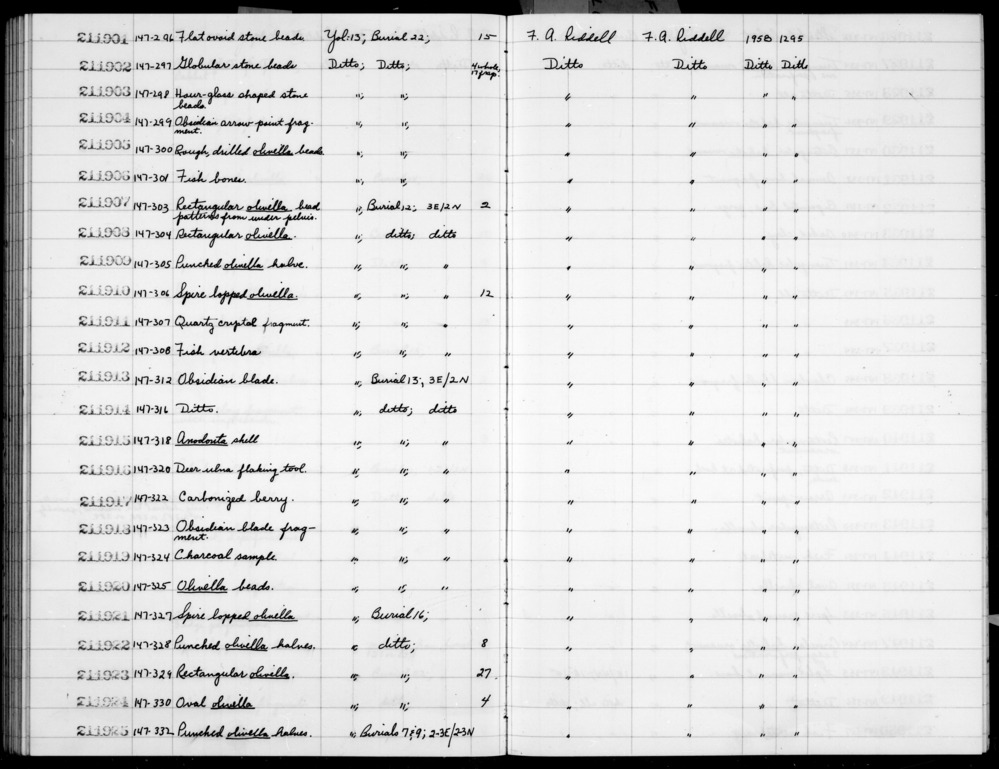 211901 147-296 Flat ovoid stone beads. Yol:13; Burial 22; 15 F. A. Riddell F. A. Riddell 1958 1295
211902 147-297 Globular stone beads Ditto; Ditto; 4 whole, 17 frag. Ditto Ditto Ditto Ditto
211903 147-298 Hour-glass shaped stone beads. "; "; " " " "
211904 147-299 Obsidian arrow point fragment. "; "; " " " "
211905 147-300 Rough, drilled olivella beads "; "; " " " "
211906 147-301 Fish bones. "; "; " " " "
211907 147-303 Rectangular olivella bead patterns from under pelvis. "; Burial 12; 3E/2N 2 " " " "
211908 147-304 Rectangular olivella. "; ditto; ditto " " " "
211909 147-305 Punched olivella halve. "; "; " " " " "
211910 147-306 Spire lopped olivella. "; "; " 12 " " " "
211911 147-307 Quartz crystal fragment. "; "; " " " " "
211912 147-308 Fish vertebra "; "; " " " " "
211913 147-312 Obsidian blade. "; Burial 13; 3E/2N " " " "
211914 147-316 Ditto. "; ditto; ditto " " " "
211915 147-318 Anodonta shell "; "; " " " " "
211916 147-320 Deer ulna flaking tool. "; "; " " " " "
211917 147-322 Carbonized berry. "; "; " " " " "
211918 147-323 Obsidian blade fragment. "; "; " " " " "
211919 147-324 Charcoal sample "; "; " " " " "
211920 147-325 Olivella beads. "; "; " " " " "
211921 147-327 Spire lopped olivella "; Burial 16; " " " "
211922 147-328 Punched olivella halves. " ditto; 8 " " " "
211923 147-329 Rectangular olivella. "; "; 27. " " " "
211924 147-330 Oval olivella "; "; 4 " " " "
211925 147-332 Punched olivella halves. "; Burials 7&9; 2-3E/2-3N " " " "